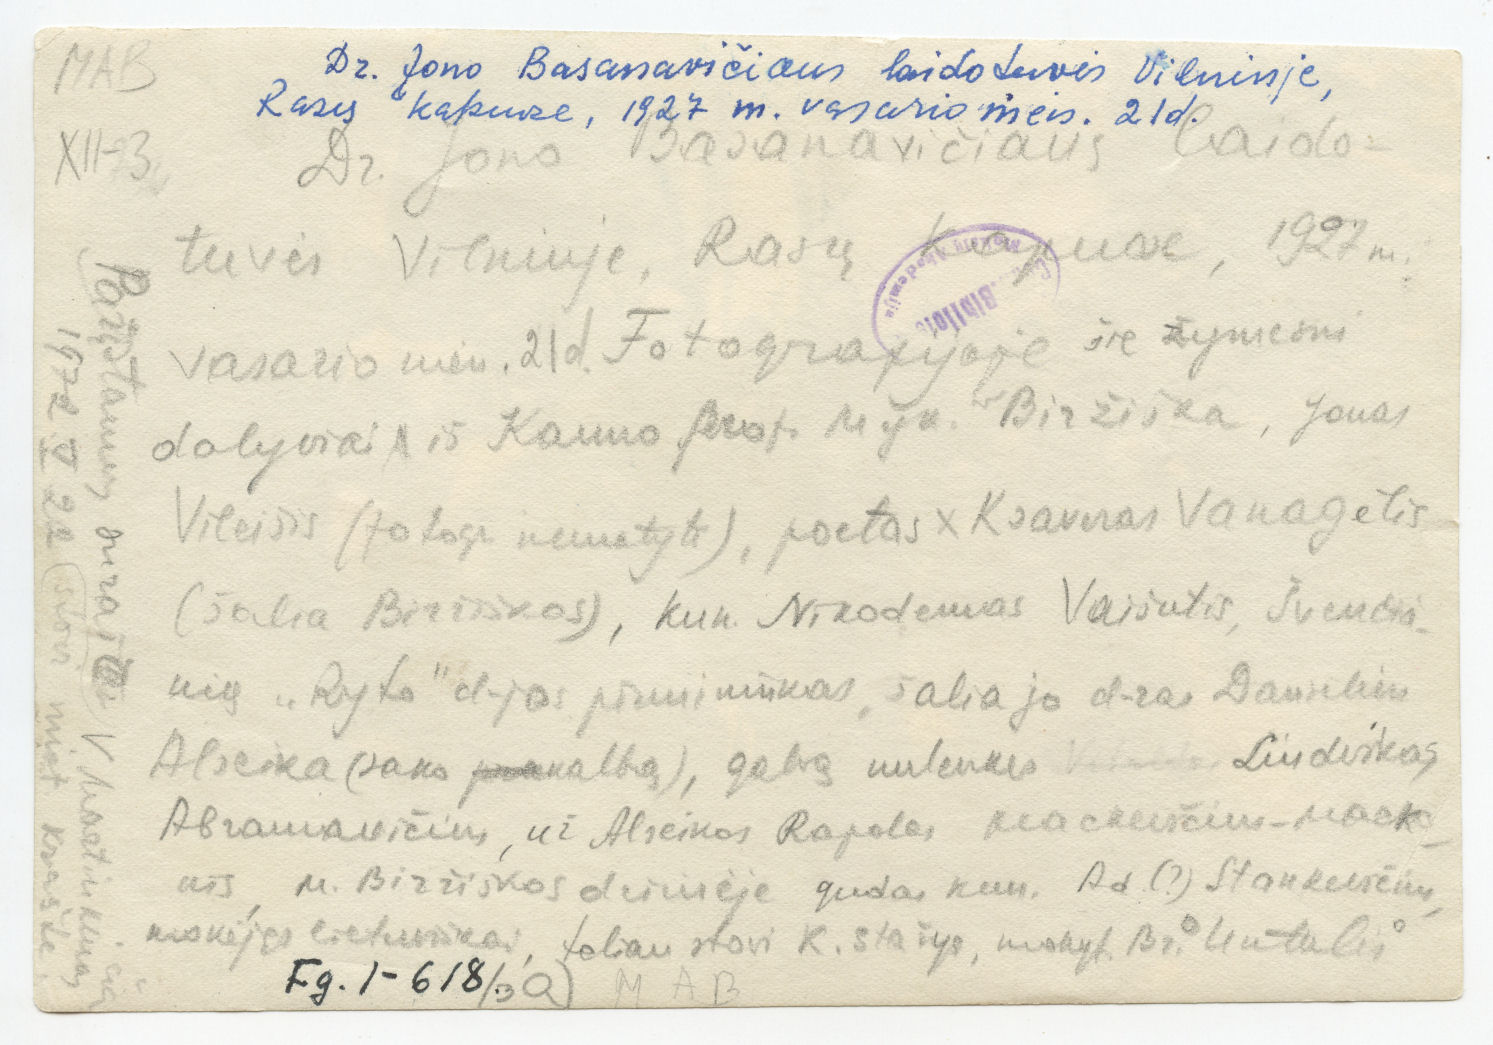 MAB
XII-3
Dr. Jono Basanavičiaus laidotuvės Vilniuje,
Rasų kapuose, 1927 m. vasario mėn. 21d.
Dr. Jono Basanavičiaus laido-
tuvės Vilniuje, Rasų kapuose, 1927 m.
vasario mėn. 21d. Fotografijoje šie žymesni
dalyviai iš Kauno prof. Myk. Biržiška, Jonas
Vileišis (fotogr. nematyti), poetas x Ksaveras Vanagėlis
(šalia Biržiškos), kun. Nikodemas Vaišutis, Švenčio-
nių „Ryto" d-jos pirmininkas, šalia jo d-ras Danielius
Alseika (sako kalbą), galvą nulenkęs Liudvikas
Abramavičius, už Alseikos Rapolas Mackevičius-Macko-
nis, M. Biržiškos dešinėje gudas kun. Ad. (?) Stankevičius,
mokėjęs lietuviškai, toliau stovi K. Stašys, mokyt. Br. Untulis
Fg. 1-618/3a) MAB
V. Martinkėnas
1972 V 22
Bibliot
Mokslų Akademija